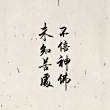 不信神佛
未知苦處